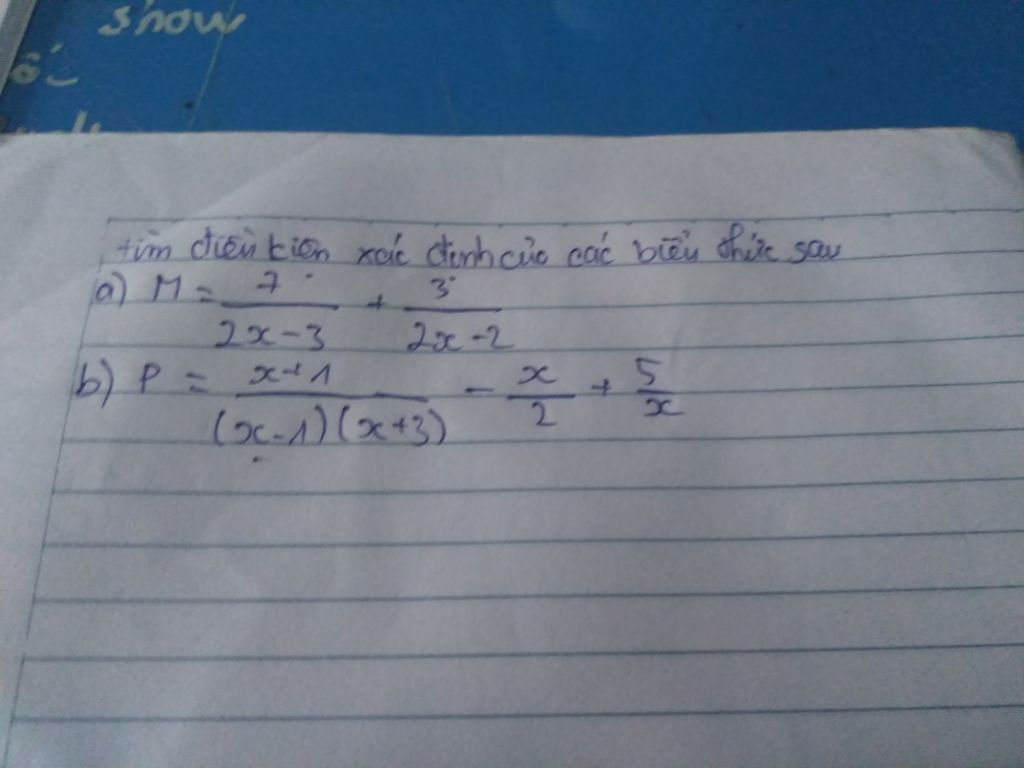 show
ốc
tìm điều kiện xác định của các biểu thức sau
a) M = 7/(2x-3) + 3/(2x-2)
b) P = (x+1)/((x-1)(x+3)) - x/2 + 5/x